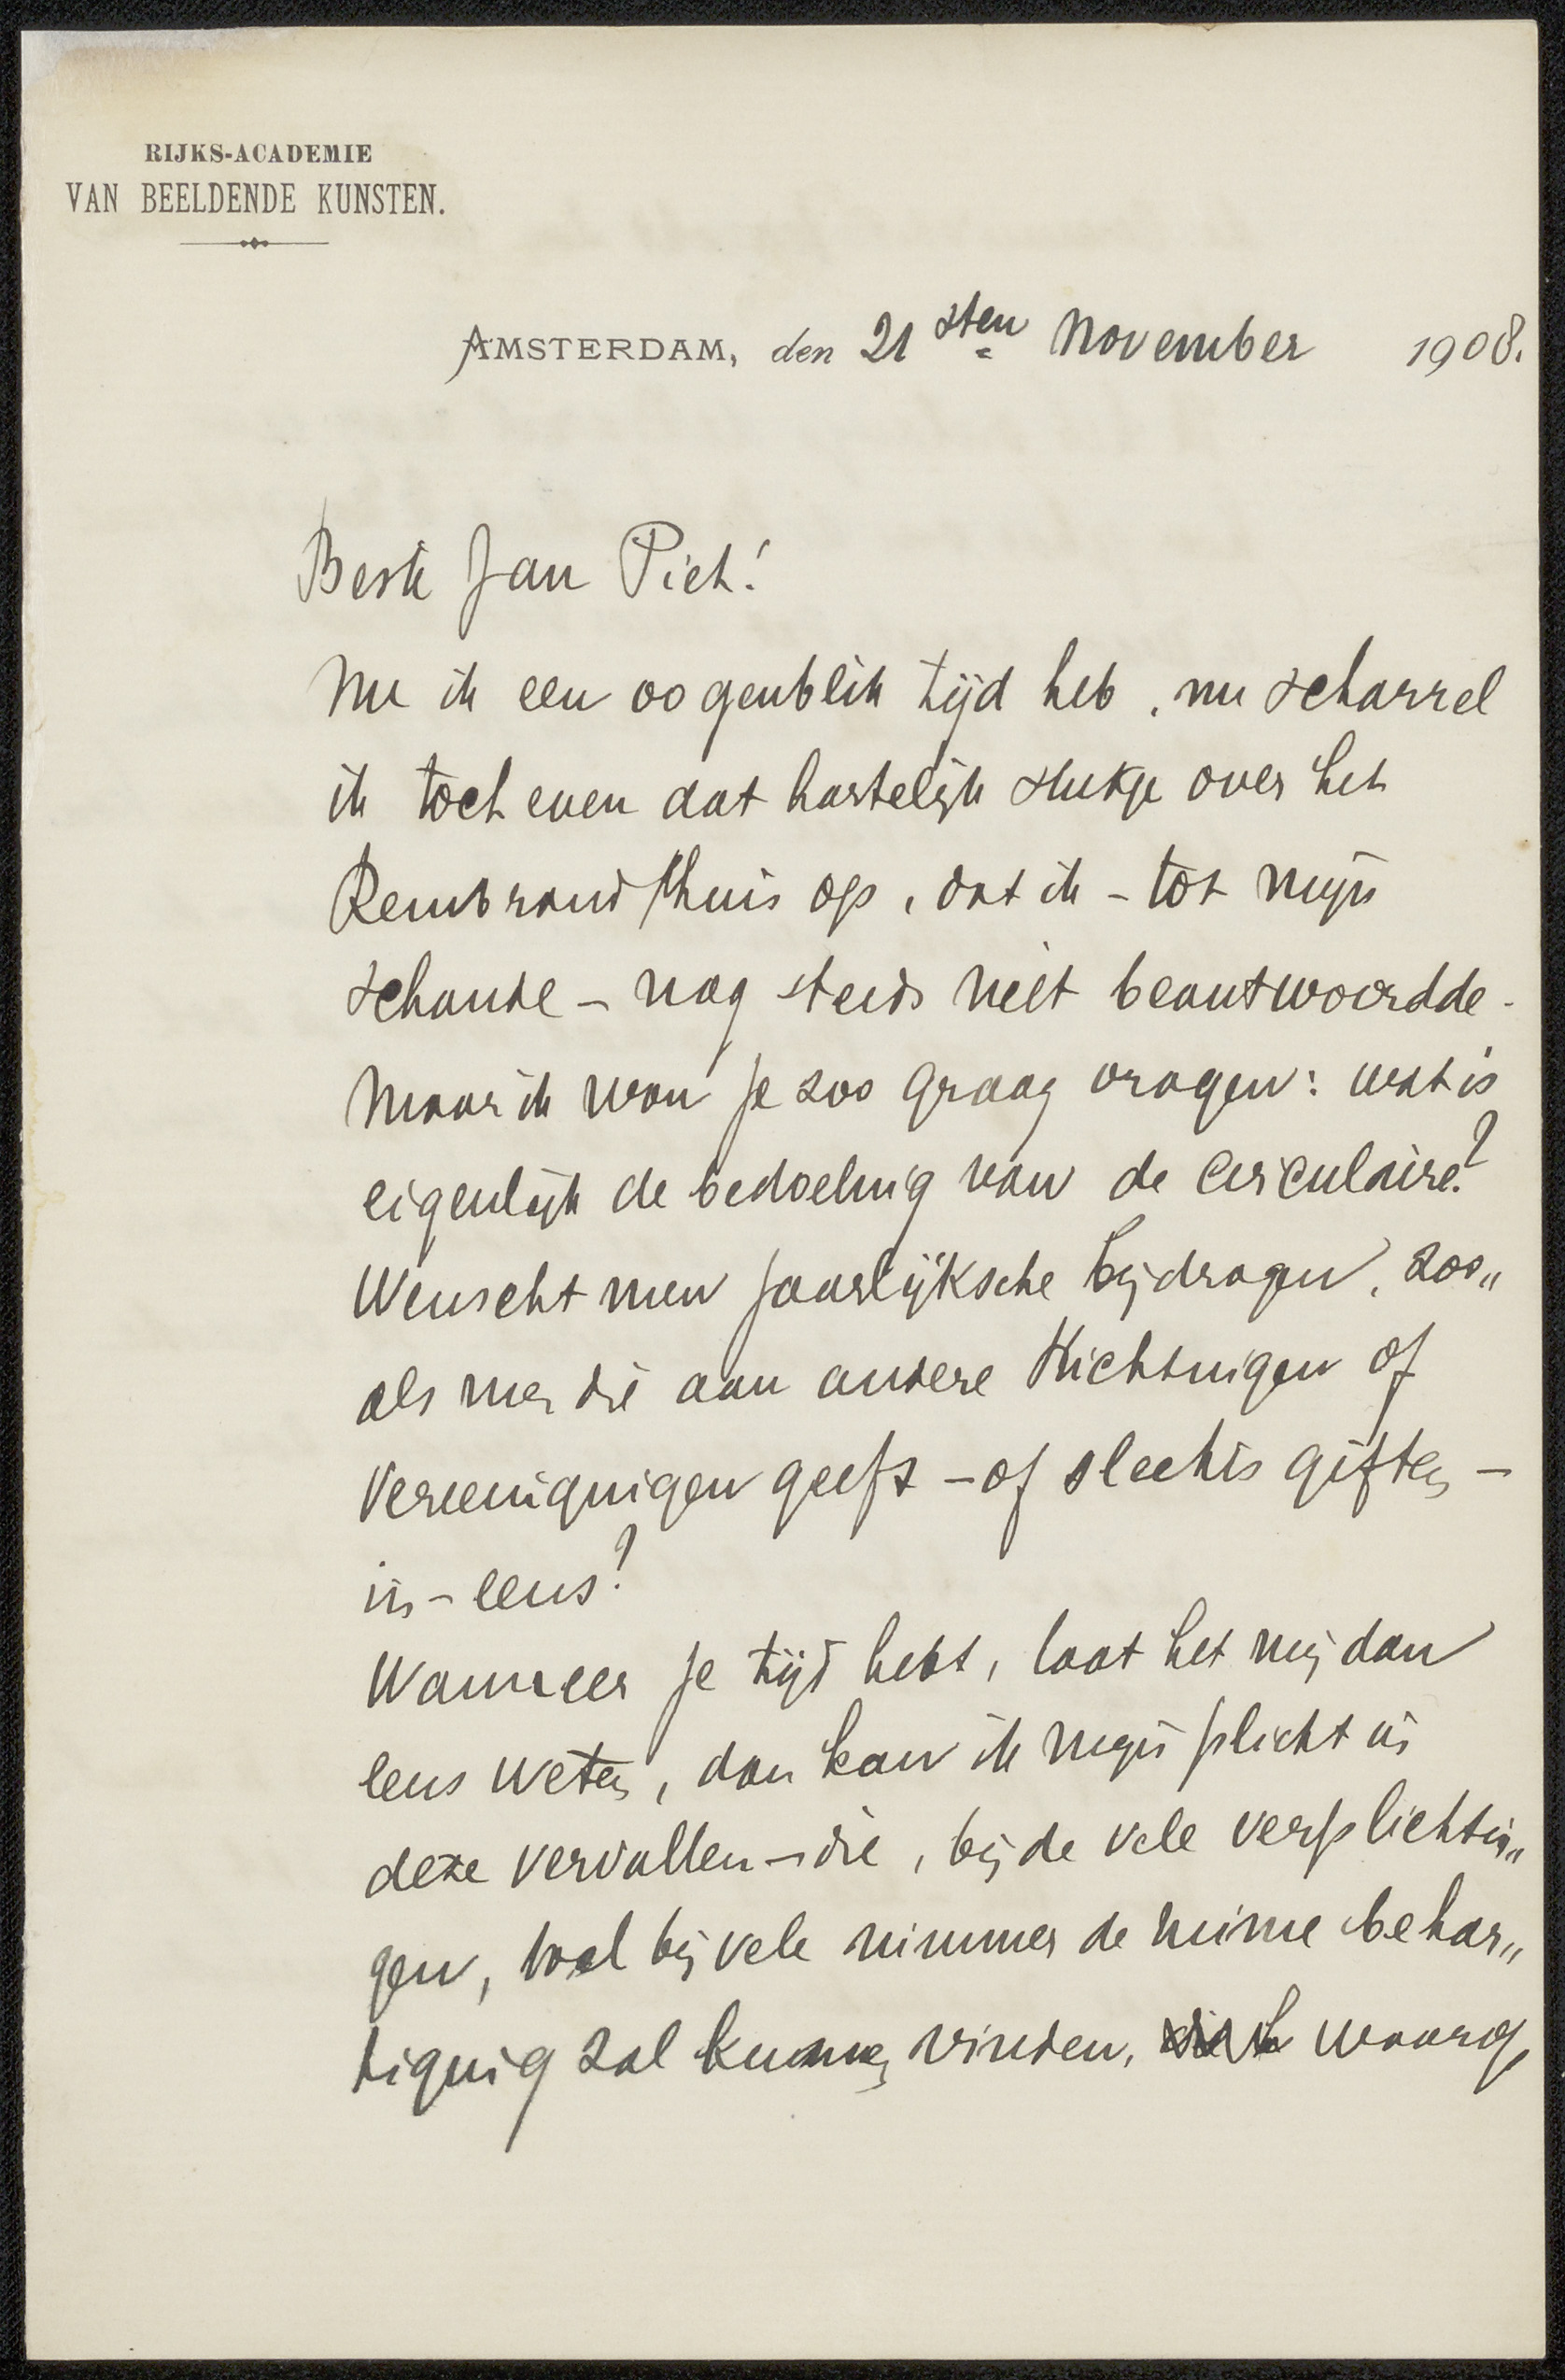 RIJKS-ACADEMIE
VAN BEELDENDE KUNSTEN.
AMSTERDAM, den 21 sten November 1908.
Beste Jan Piet!
Nu ik een oogenblik tijd heb, nu scharrel
ik toch even dat hartelijk stukje over het
Rembrandthuis op, dat ik - tot mijn
schande - nog steeds niet beantwoordde.
Maar ik wou je zoo graag vragen: wat is
eigenlijk de bedoeling van de circulaire?
Wenscht men jaarlijksche bijdragen, zoo„
als men die aan andere stichtingen of
vereenigingen geeft - of slechts giften -
in-eens?
Wanneer je tijd hebt, laat het mij dan
eens weten, dan kan ik mijn plicht in
deze vervullen - die, bij de vele verplichtin„
gen, wel bij vele nimmer de ruime behar„
tiging zal kunnen vinden, waarop